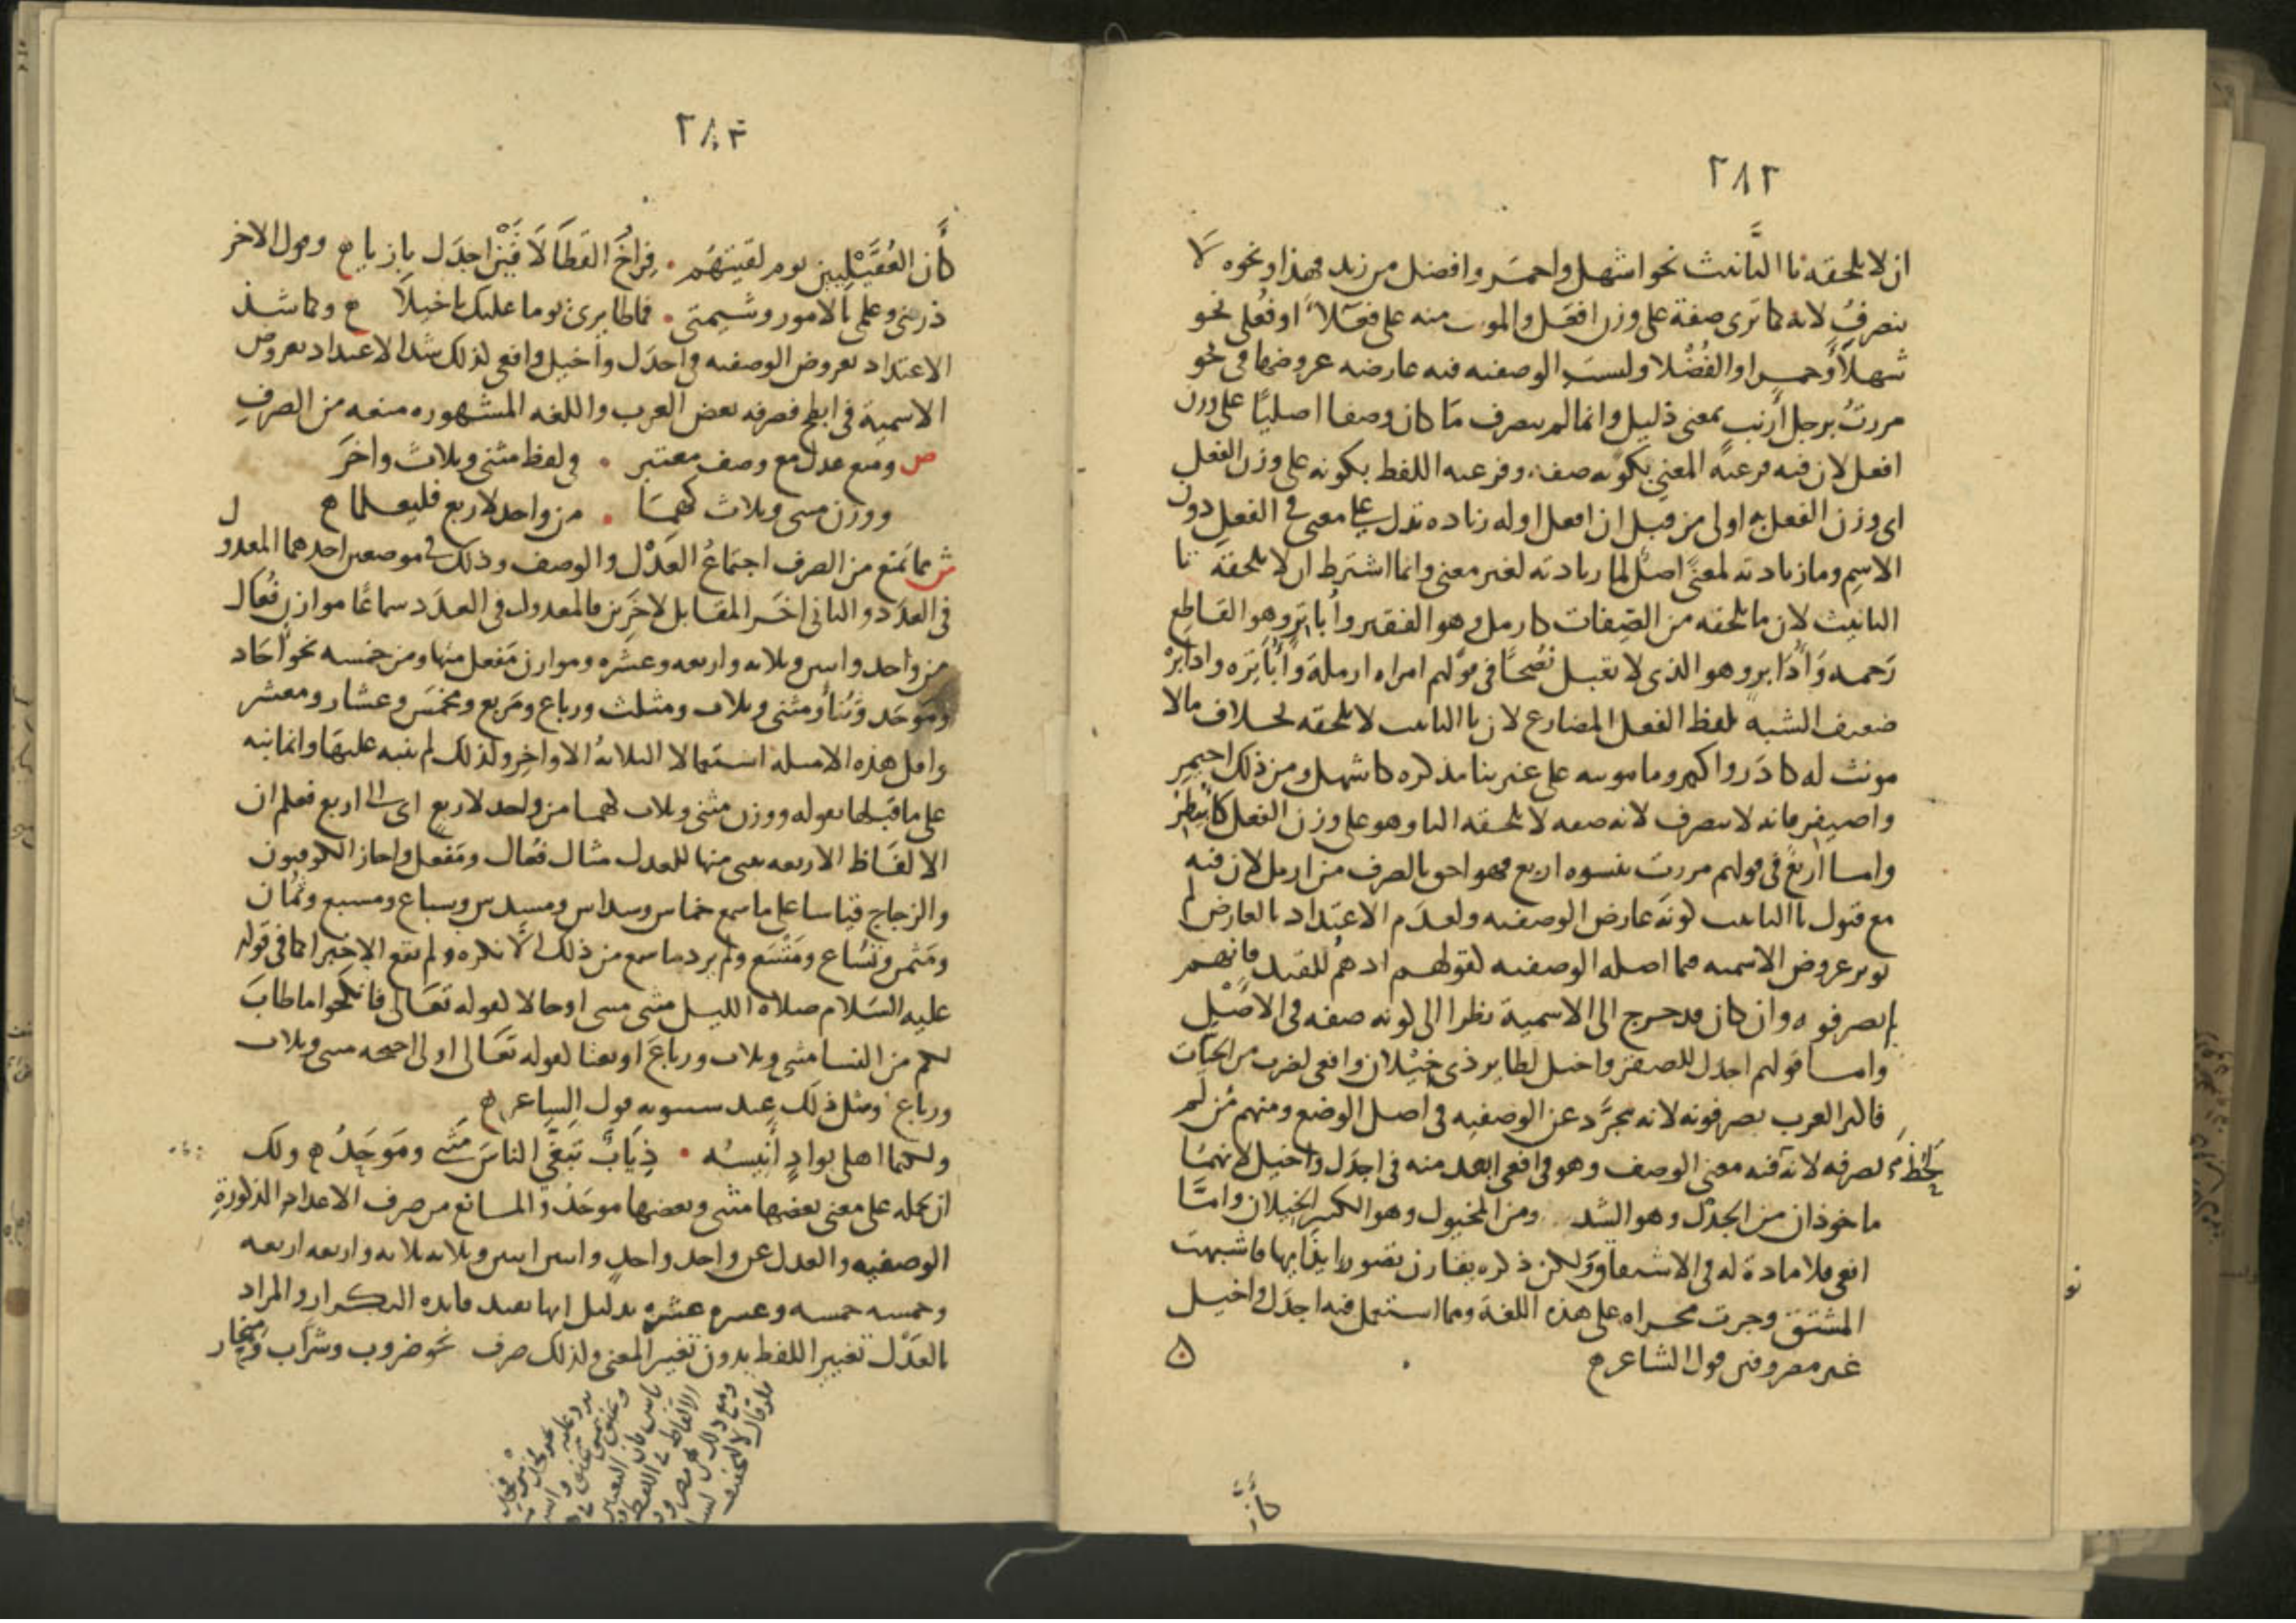 ٢٨٢
ان لا تلحقه تا التانيث نحو اشهل واحمر وافضل من زيد فهذا ونحوه لا
ينصرف لانه كما ترى صفة على وزن افعل والمونث منه على فعلاء او فعلى نحو
شهلا وحمرا والفضلا وليست الوصفيه فيه عارضه عروضها في نحو
مررت برجل ارنب بمعنى ذليل وانما لم ينصرف ما كان وصفا اصليا على وزن
افعل لان فيه فرعية المعنى بكونه صفه وفرعيه اللفظ بكونه على وزن الفعل
اى وزن الفعل به اولى من قبل ان افعل اوله زياده تدل على معنى في الفعل دون
الاسم وما زيادته لمعنى اصل لما زيادته لغير معنى وانما اشترط ان لا تلحقه تا
التانيث لان ما تلحقه من الصفات كارمل وهو الفقير واباتر وهو القاطع
رحمه وادابر وهو الذى لا يقبل نصحا في قولهم امراه ارملة واباتره وادابره
ضعيف الشبه بلفظ الفعل المضارع لان تا التانيث لا تلحقه بخلاف ما لا
مونث له كادر واكمر وما مونثه على غير بنا مذكره كاشهل ومن ذلك احيمر
واصيفر فانه لا ينصرف لانه صفه لا تلحقه التا وهو على وزن الفعل كابيطر
واما اربع في قولهم مررت بنسوه اربع فهو احق بالصرف من ارمل لان فيه
مع قبول تا التانيث كونه عارض الوصفيه ولعدم الاعتداد بالعارض لم
يوثر عروض الاسميه فيما اصله الوصفيه لقولهم ادهم للقيد فانهم
لم يصرفوه وان كان قد خرج الى الاسمية نظرا الى كونه صفه في الاصل
واما قولهم اجدل للصقر واخيل لطاير ذى خيلان وافعى لضرب من الحيات
فاكثر العرب يصرفونه لانه مجرد عن الوصفيه في اصل الوضع ومنهم من لم
يصرفه لانه لحظ فيه معنى الوصف وهو في افعى ابعد منه في اجدل واخيل لانهما
ماخوذان من الجدل وهو الشد ومن المخيول وهو الكثير الخيلان واما
افعى فلا مادة له في الاشتقاق ولكن ذكره يقارن تصور ايذايها فاشبهت
المشتق وجرت مجراه على هذه اللغة ومما استعمل فيه اجدل واخيل
غير مصروفين قول الشاعر
كان
٢٨٣
كان العقيليين يوم لقيتهم فراخ القطا لاقين اجدل بازيا وقول الاخر
ذرينى وعلمى بالامور وشيمتى فما طايرى يوما عليك باخيلا وكما شذ
الاعتداد بعروض الوصفيه في اجدل واخيل وافعى لذلك شذ الاعتداد بعروض
الاسمية في ابطح فصرفه بعض العرب واللغه المشهوره منعه من الصرف
ص ومنع عدل مع وصف معتبر في لفظ مثنى وثلاث واخر
ووزن مثنى وثلاث كهما من واحد لاربع فليعلما
ش مما يمنع من الصرف اجتماع العدل والوصف وذلك في موضعين احدهما المعدول
في العدد والثانى اخر المقابل لاخرين فالمعدول في العدد سماعا موازن فعال
من واحد واثنين وثلاثه واربعه وعشره وموازن مفعل منها ومن خمسه نحو احاد
وموحد وثنا ومثنى وثلاث ومثلث ورباع ومربع ومخمس وعشار ومعشر
واقل هذه الامثله استعمالا الثلاثه الاواخر ولذلك لم ينبه عليها وانما نبه
على ما قبلها بقوله ووزن مثنى وثلاث كهما من واحد لاربع اى الى اربع فعلم ان
الالفاظ الاربعه يبنى منها للعدل مثال فعال ومفعل واجاز الكوفيون
والزجاج قياسا على ما سمع خماس وسداس ومسدس وسباع ومسبع وثمان
ومثمن وتساع ومتسع ولم يرد ما سمع من ذلك الا نكره ولم تقع الا خبرا كما في قوله
عليه السلام صلاه الليل مثنى مثنى او حالا لقوله تعالى فانكحوا ما طاب
لكم من النسا مثنى وثلاث ورباع او نعتا لقوله تعالى اولى اجنحه مثنى وثلاث
ورباع ومثل ذلك عند سيبويه قول الشاعر
ولكنما اهلى بواد انيسه ذياب تبغى الناس مثنى وموحد ولك
ان تحمله على معنى بعضها مثنى وبعضها موحد والمانع من صرف الاعداد المذكورة
الوصفيه والعدل عن واحد واحد واثنين اثنين وثلاثه ثلاثه واربعه اربعه
وخمسه خمسه وعشره عشره بدليل انها تفيد فايده التكرار والمراد
بالعدل تغيير اللفظ بدون تغيير المعنى ولذلك صرف نحو ضروب وشراب ومنحار